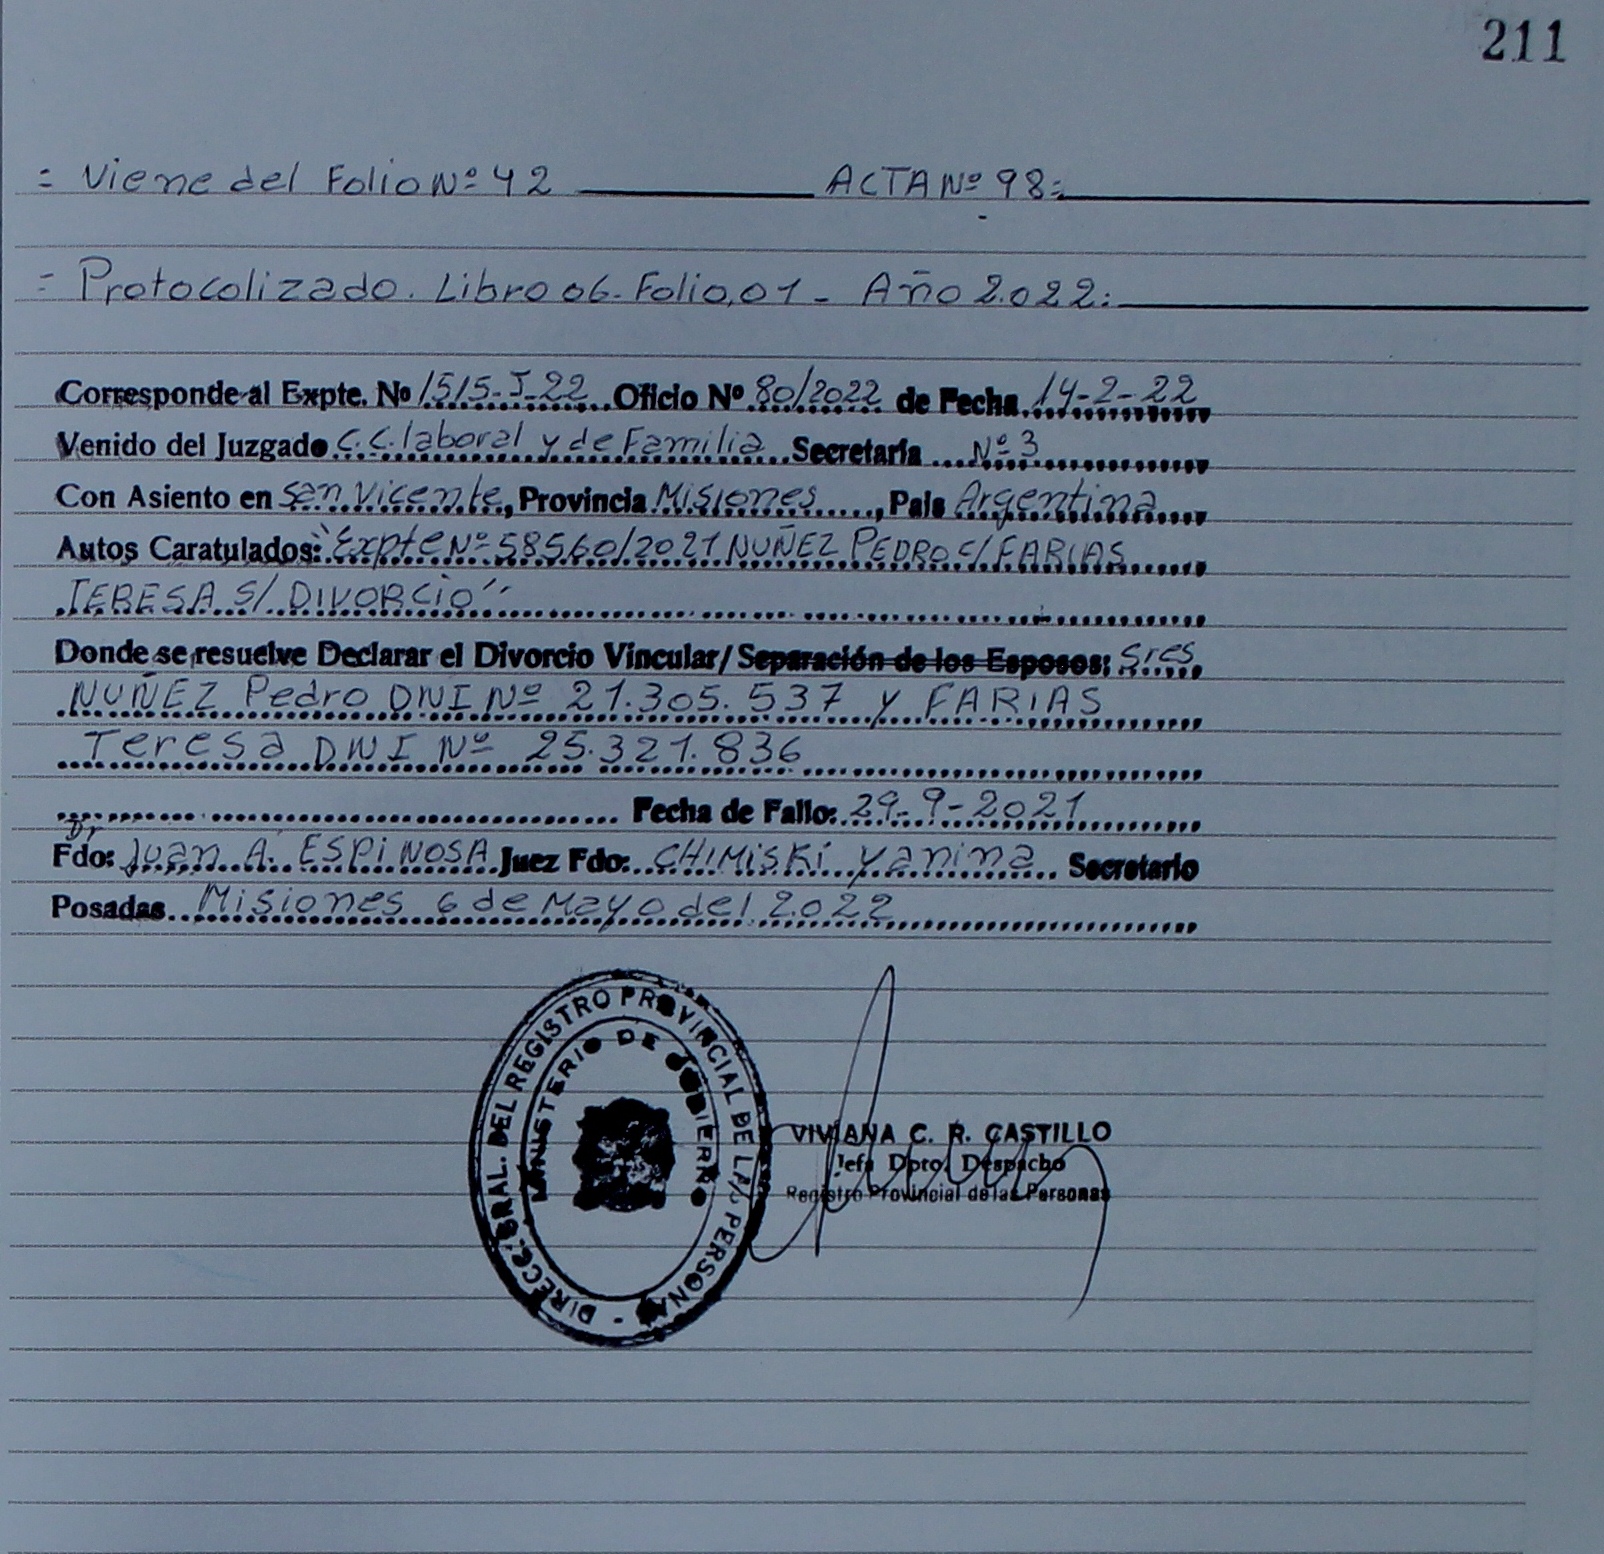 211
= Viene del Folio Nº 42 ACTA Nº 98=
= Protocolizado. Libro 06. Folio, 01 - Año 2.022:
Corresponde al Expte. Nº 1515-I-22 Oficio Nº 80/2022 de Fecha 14-2-22
Venido del Juzgado C.C. laboral y de Familia Secretaria Nº 3
Con Asiento en San Vicente, Provincia Misiones, País Argentina
Autos Caratulados: "Expte Nº 58560/2021 NUÑEZ PEDRO C/ FARIAS
TERESA S/ DIVORCIO"
Donde se resuelve Declarar el Divorcio Vincular/ Separación de los Esposos: Sres
NUÑEZ Pedro DNI Nº 21.305.537 y FARIAS
Teresa DNI Nº 25.321.836
Fecha de Fallo: 29-9-2021
Fdo: Dr Juan A. ESPINOSA Juez Fdo: CHIMISKI Yanina Secretario
Posadas Misiones 6 de Mayo del 2.022
DIRECC. GRAL. DEL REGISTRO PROVINCIAL DE LAS PERSONAS -
MINISTERIO DE GOBIERNO
VIVIANA C. R. CASTILLO
Jefa Dpto. Despacho
Registro Provincial de las Personas